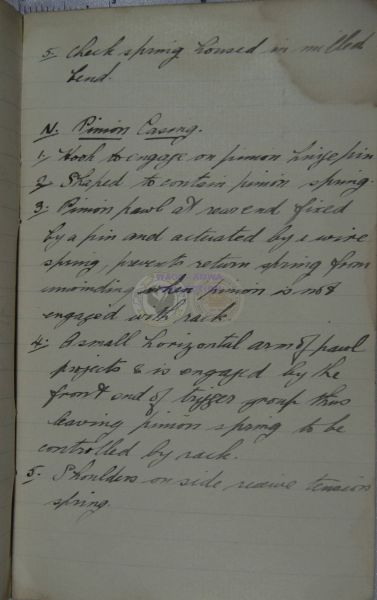 5. Check spring housed in milled
bend.
N. Pinion Casing.
1, Hook to engage on pinion hinge pin
2, Shaped to contain pinion spring.
3. Pinion pawl at rear end fixed
by a pin and actuated by a wire
spring, prevents return spring from
unwinding when pinion is not
engaged with rack.
4. A small horizontal arm of pawl
projects & is engaged by the
front end of trigger group thus
leaving pinion spring to be
controlled by rack.
5. Shoulders on side receive tension
spring.